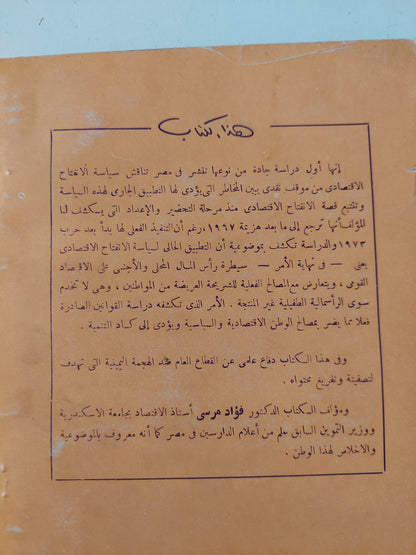 هذا الكتاب
إنها أول دراسة جادة من نوعها تنشر فى مصر تناقش سياسة الانفتاح
الاقتصادى من موقف نقدى يبين المخاطر التى يؤدى لها التطبيق الجارى لهذه السياسة
وتتتبع قصة الانفتاح الاقتصادى منذ مرحلة التحضير والإعداد التى يستكشف لنا
المؤلف أنها ترجع إلى ما بعد هزيمة ١٩٦٧، رغم أن التنفيذ الفعلى لها بدأ بعد حرب
١٩٧٣ والدراسة تكشف بموضوعية أن التطبيق الحالى لسياسة الانفتاح الاقتصادى
يعنى — فى نهاية الأمر — سيطرة رأس المال المحلى والأجنبى على الاقتصاد
القومى، ويتعارض مع المصالح الفعلية للشريحة العريضة من المواطنين، وهى لا تخدم
سوى الرأسمالية الطفيلية غير المنتجة. الأمر الذى تكشفه دراسة القوانين الصادرة
فعلا مما يضر بمصالح الوطن الاقتصادية والسياسية ويؤدى إلى كساد التنمية.
وفى هذا الكتاب دفاع علمى عن القطاع العام ضد الهجمة اليمينية التى تهدف
لتصفيته وتفريغ محتواه.
ومؤلف الكتاب الدكتور فؤاد مرسى أستاذ الاقتصاد بجامعة الاسكندرية
ووزير التموين السابق علم من أعلام الدارسين فى مصر كما أنه معروف بالموضوعية
والاخلاص لهذا الوطن.